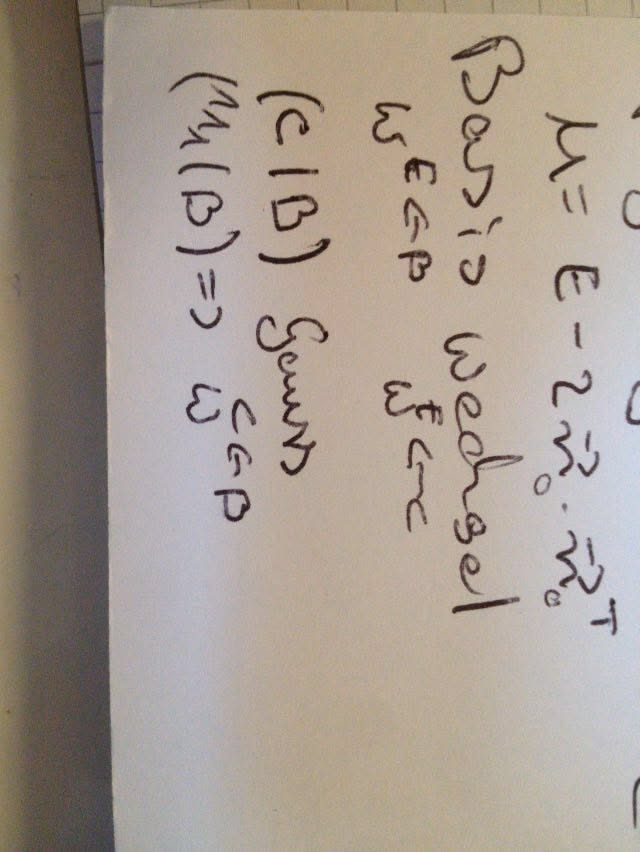 M = E - 2 n⃗₀ · n⃗₀ᵀ
Basis Wechsel
W^{E←B} W^{E←C}
(C|B) Gauss
|B) => W^{C←B}